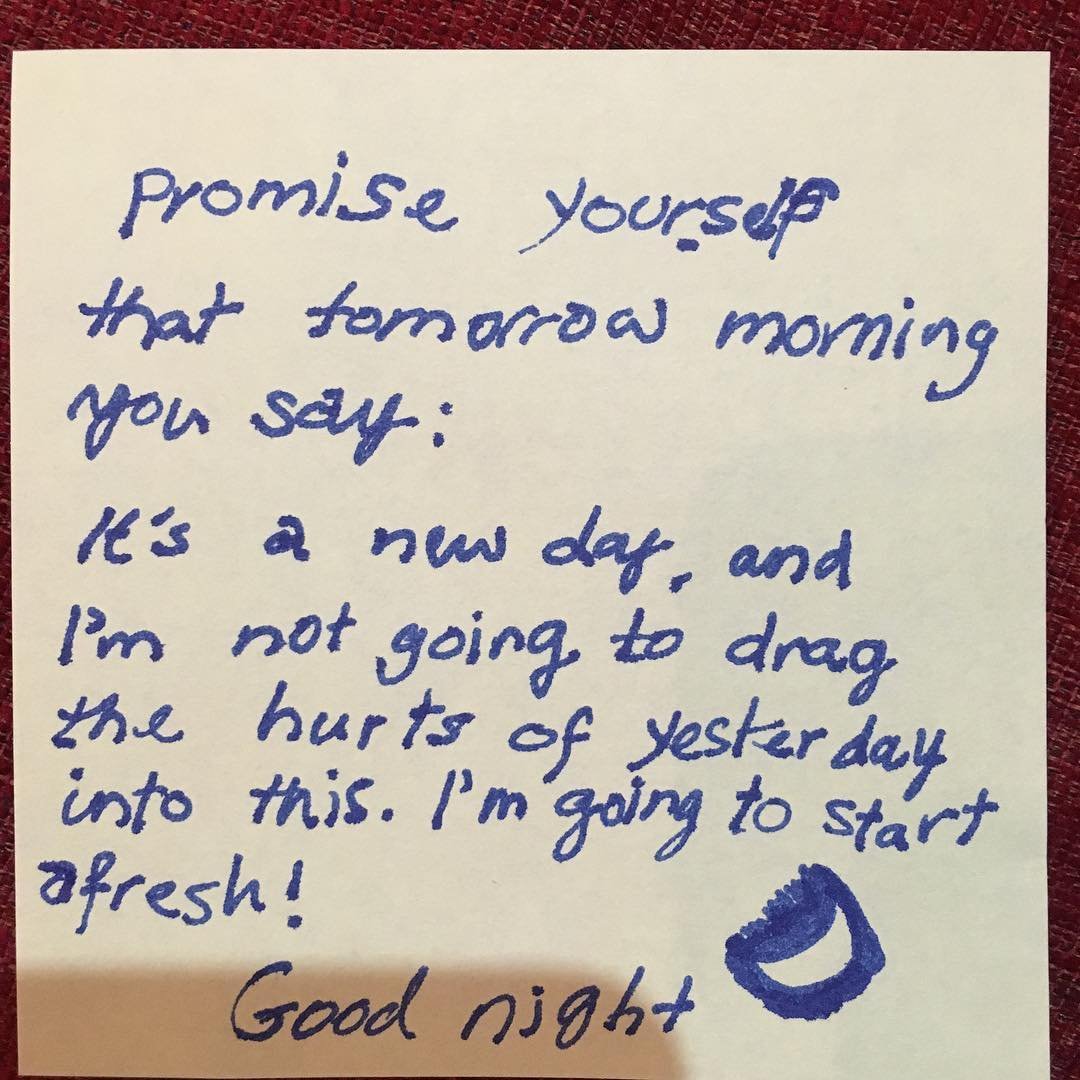 Promise yourself
that tomorrow morning
you say:
It's a new day, and
I'm not going to drag
the hurts of yesterday
into this. I'm going to start
afresh!
Good night